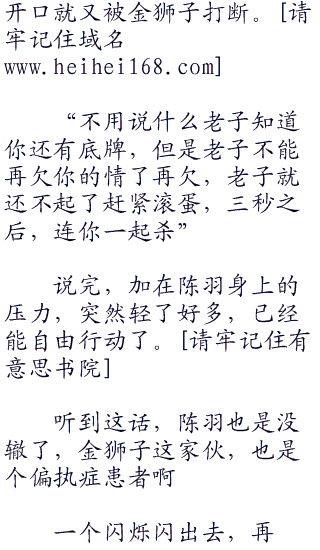 开口就又被金狮子打断。[请
牢记住域名
www.heihei168.com]
“不用说什么老子知道
你还有底牌，但是老子不能
再欠你的情了再欠，老子就
还不起了赶紧滚蛋，三秒之
后，连你一起杀”
说完，加在陈羽身上的
压力，突然轻了好多，已经
能自由行动了。[请牢记住有
意思书院]
听到这话，陈羽也是没
辙了，金狮子这家伙，也是
个偏执症患者啊
一个闪烁闪出去，再